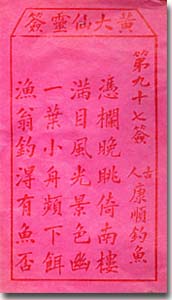 黃大仙靈簽
第九十七簽
古人
康順釣魚
憑欄晚眺倚南樓
滿目風光景色幽
一葉小舟頻下餌
漁翁釣得有魚否